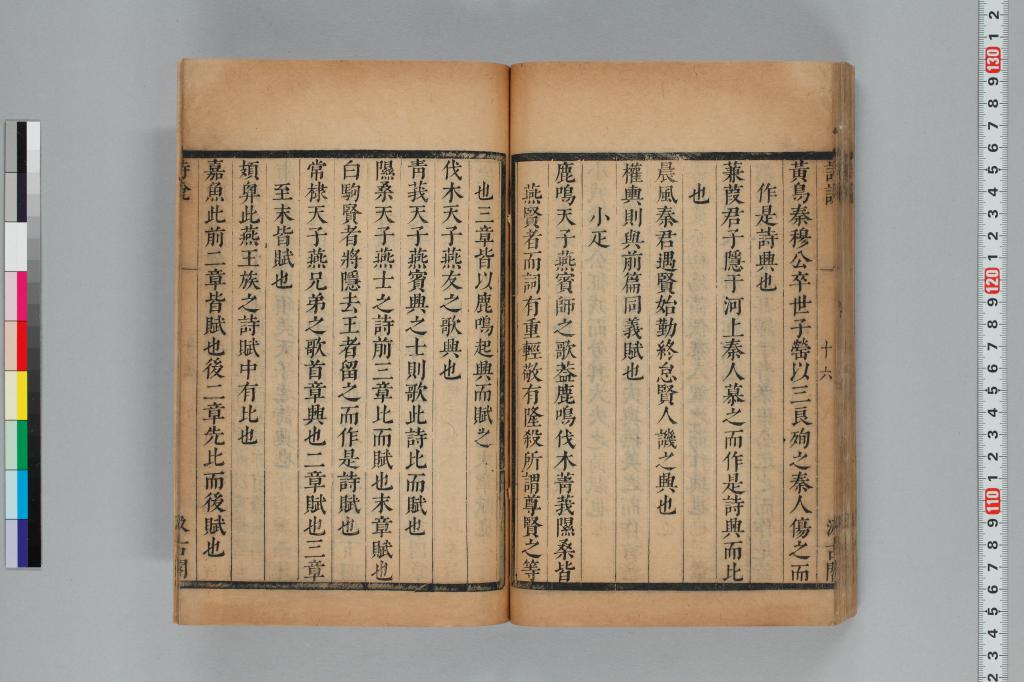 詩說
十六
汲古閣
黃鳥秦穆公卒世子罃以三良殉之秦人傷之而
作是詩興也
蒹葭君子隱于河上秦人慕之而作是詩興而比
也
晨風秦君遇賢始勤終怠賢人譏之興也
權輿則與前篇同義賦也
小疋
鹿鳴天子燕賓師之歌葢鹿鳴伐木菁莪隰桑皆
燕賢者而詞有重輕敬有隆殺所謂尊賢之等
也三章皆以鹿鳴起興而賦之
伐木天子燕友之歌興也
菁莪天子燕賓興之士則歌此詩比而賦也
隰桑天子燕士之詩前三章比而賦也末章賦也
白駒賢者將隱去王者留之而作是詩賦也
常棣天子燕兄弟之歌首章興也二章賦也三章
至末皆賦也
頍弁此燕王族之詩賦中有比也
嘉魚此前二章皆賦也後二章先比而後賦也
詩說
汲古閣